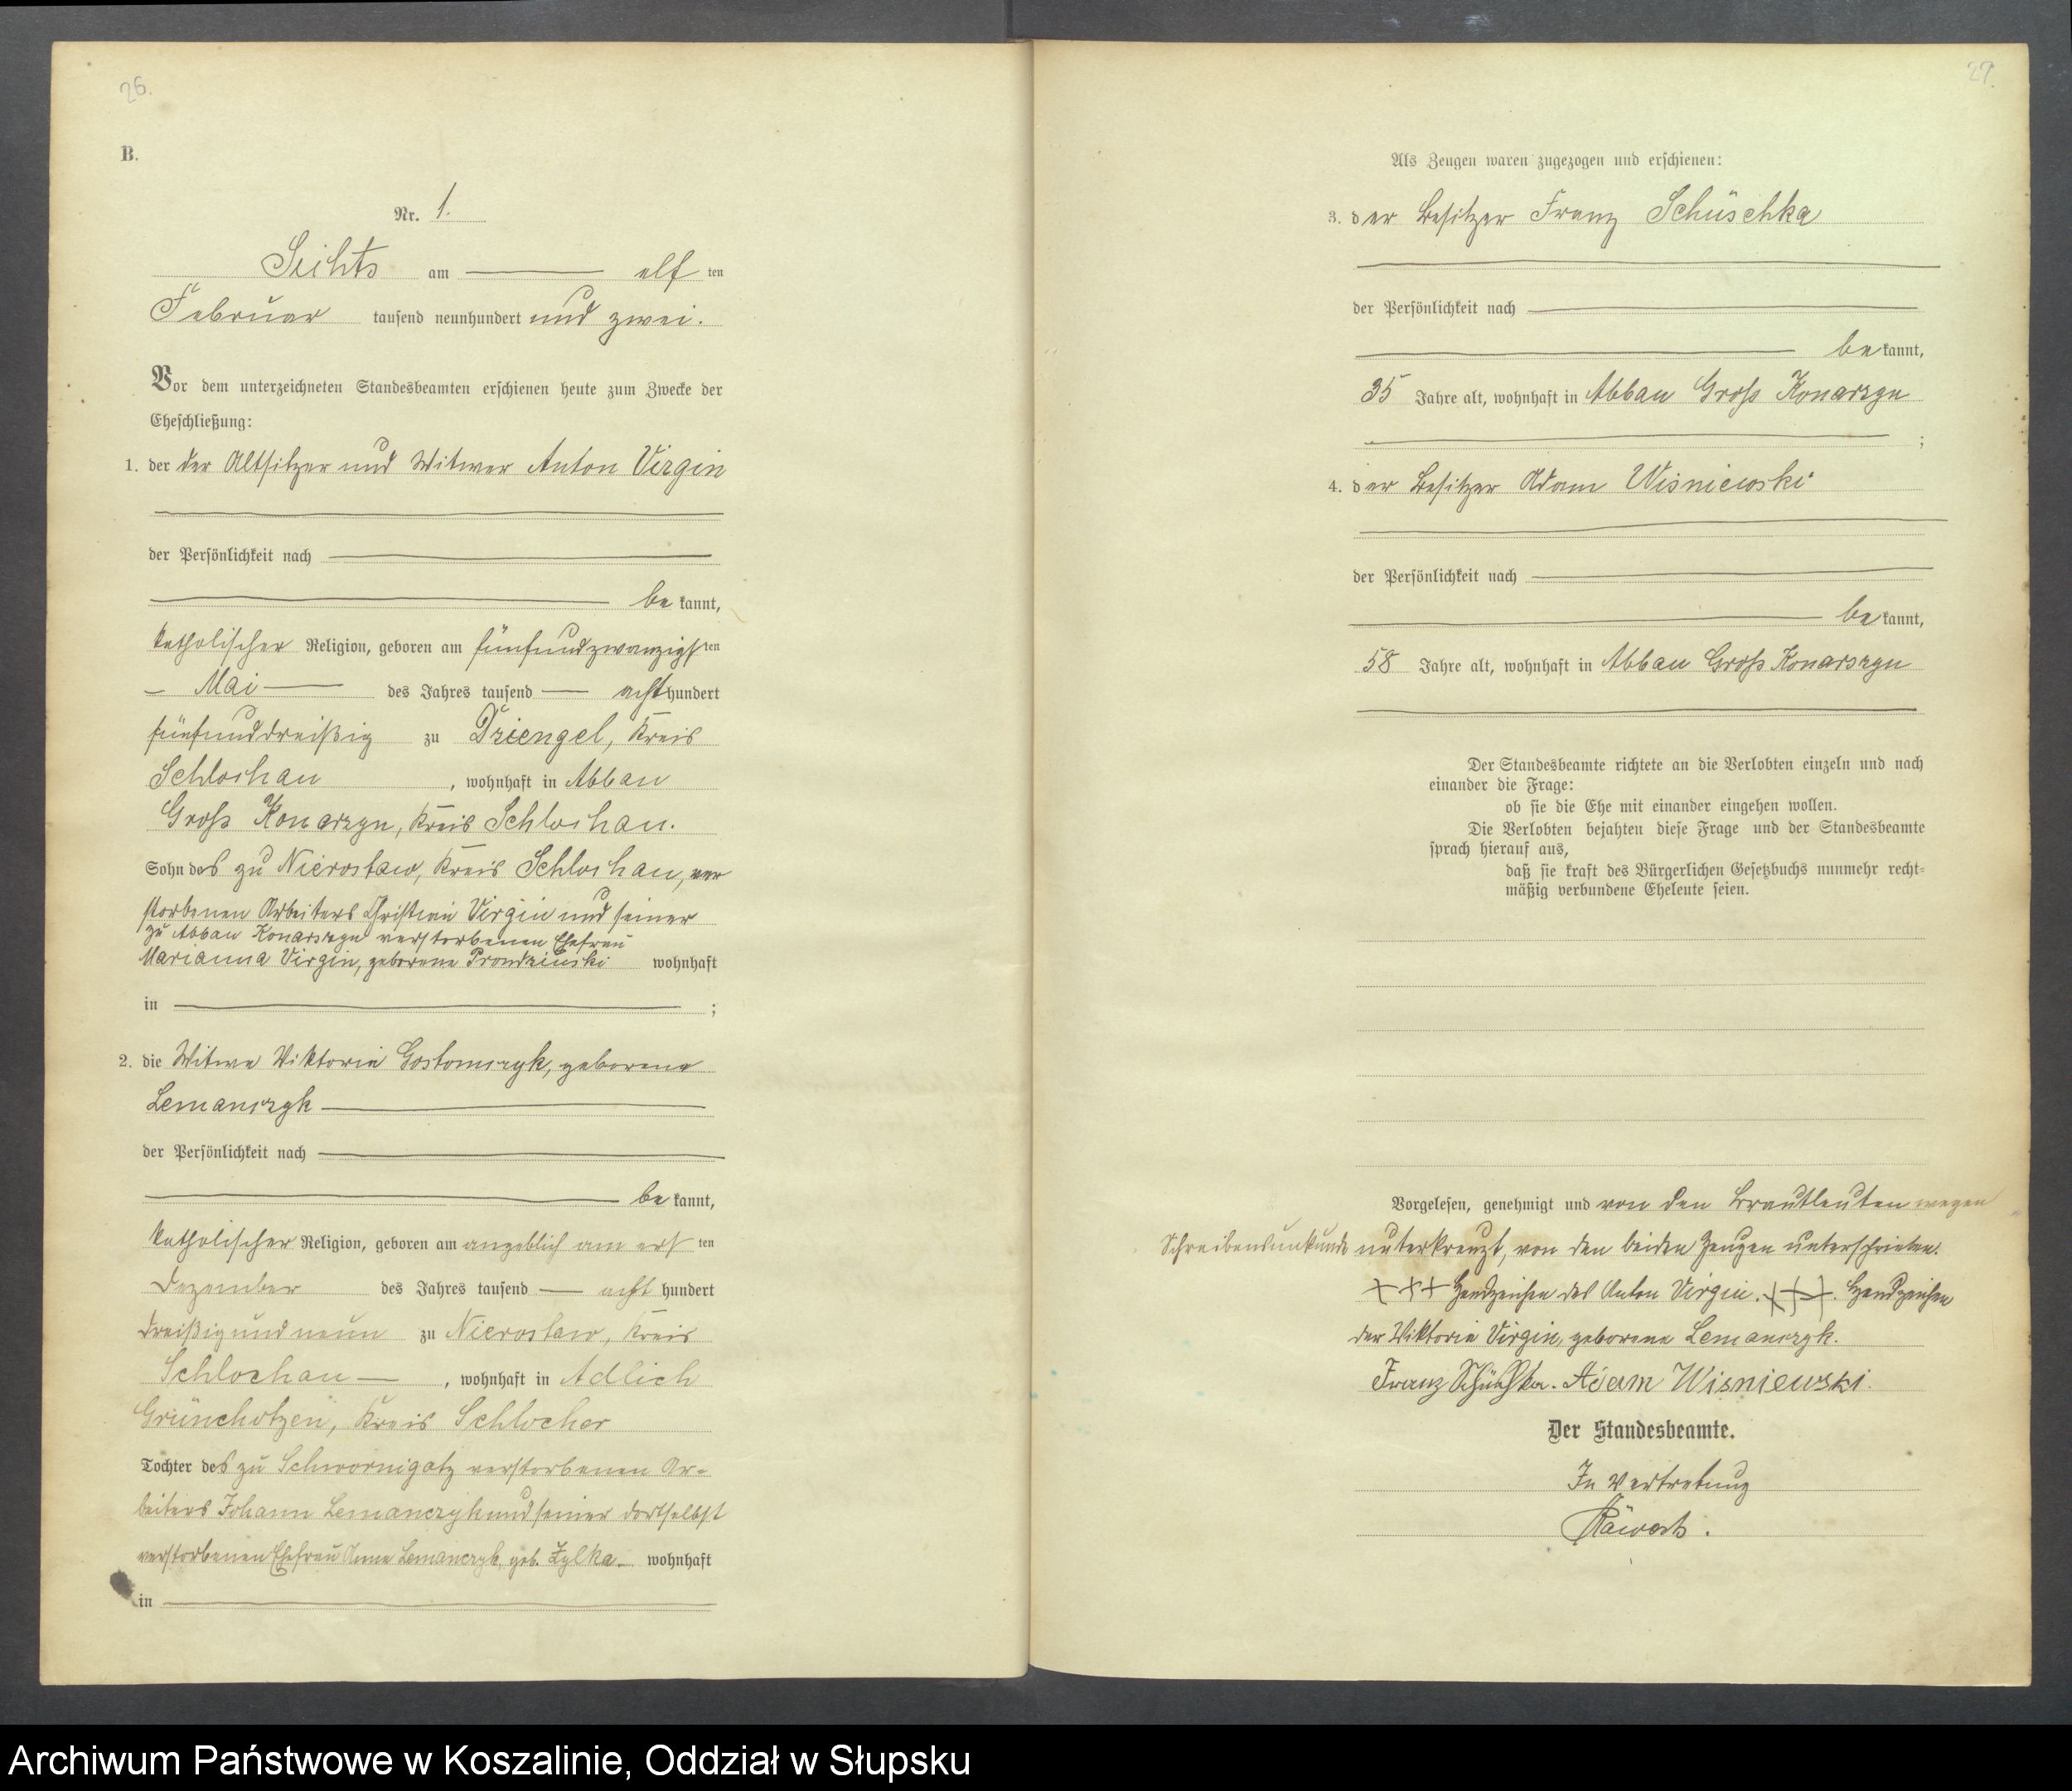 26.
B.
Nr. 1.
Sichts am elf ten
Februar tausend neunhundert und zwei.
Vor dem unterzeichneten Standesbeamten erschienen heute zum Zwecke der
Eheschließung:
1. der der Altsitzer und Witwer Anton Virgin
der Persönlichkeit nach
be kannt,
katholischer Religion, geboren am fünfundzwanzigsten
Mai des Jahres tausend acht hundert
fünfunddreißig zu Dziengel, Kreis
Schlochau, wohnhaft in Abbau
Gross Konarzyn, Kreis Schlochau.
Sohn des zu Nierostaw, Kreis Schlochau, ver
storbenen Arbeiters Christian Virgin und seiner
zu Abbau Konarszyn verstorbenen Ehefrau
Marianna Virgin, geborene Prondzinski wohnhaft
in ;
2. die Witwe Viktoria Gostomczyk, geborene
Lemanczyk
der Persönlichkeit nach
be kannt,
katholischer Religion, geboren am angeblich am ersten
Dezember des Jahres tausend acht hundert
dreißig und neun zu Nierostaw, Kreis
Schlochau, wohnhaft in Adlich
Grünchotzen, Kreis Schlochau
Tochter des zu Schwornigatz verstorbenen Ar-
beiters Johann Lemanczyk und seiner dortselbst
verstorbenen Ehefrau Anna Lemanczyk, geb. Zylka wohnhaft
in
27.
Als Zeugen waren zugezogen und erschienen:
3. der Besitzer Franz Schüschka
der Persönlichkeit nach
be kannt,
35 Jahre alt, wohnhaft in Abbau Gross Konarszyn
;
4. der Besitzer Adam Wisniewski
der Persönlichkeit nach
be kannt,
58 Jahre alt, wohnhaft in Abbau Gross Konarszyn
Der Standesbeamte richtete an die Verlobten einzeln und nach
einander die Frage:
ob sie die Ehe mit einander eingehen wollen.
Die Verlobten bejahten diese Frage und der Standesbeamte
sprach hierauf aus,
daß sie kraft des Bürgerlichen Gesetzbuchs nunmehr recht-
mäßig verbundene Eheleute seien.
Vorgelesen, genehmigt und von den Brautleuten wegen
Schreibensunkunde unterkreuzt, von den beiden Zeugen unterschrieben.
+++ Handzeichen des Anton Virgin. +++. Handzeichen
der Viktoria Virgin, geborene Lemanczyk.
Franz Schüschka. Adam Wisniewski.
Der Standesbeamte.
In Vertretung
Archiwum Państwowe w Koszalinie, Oddział w Słupsku